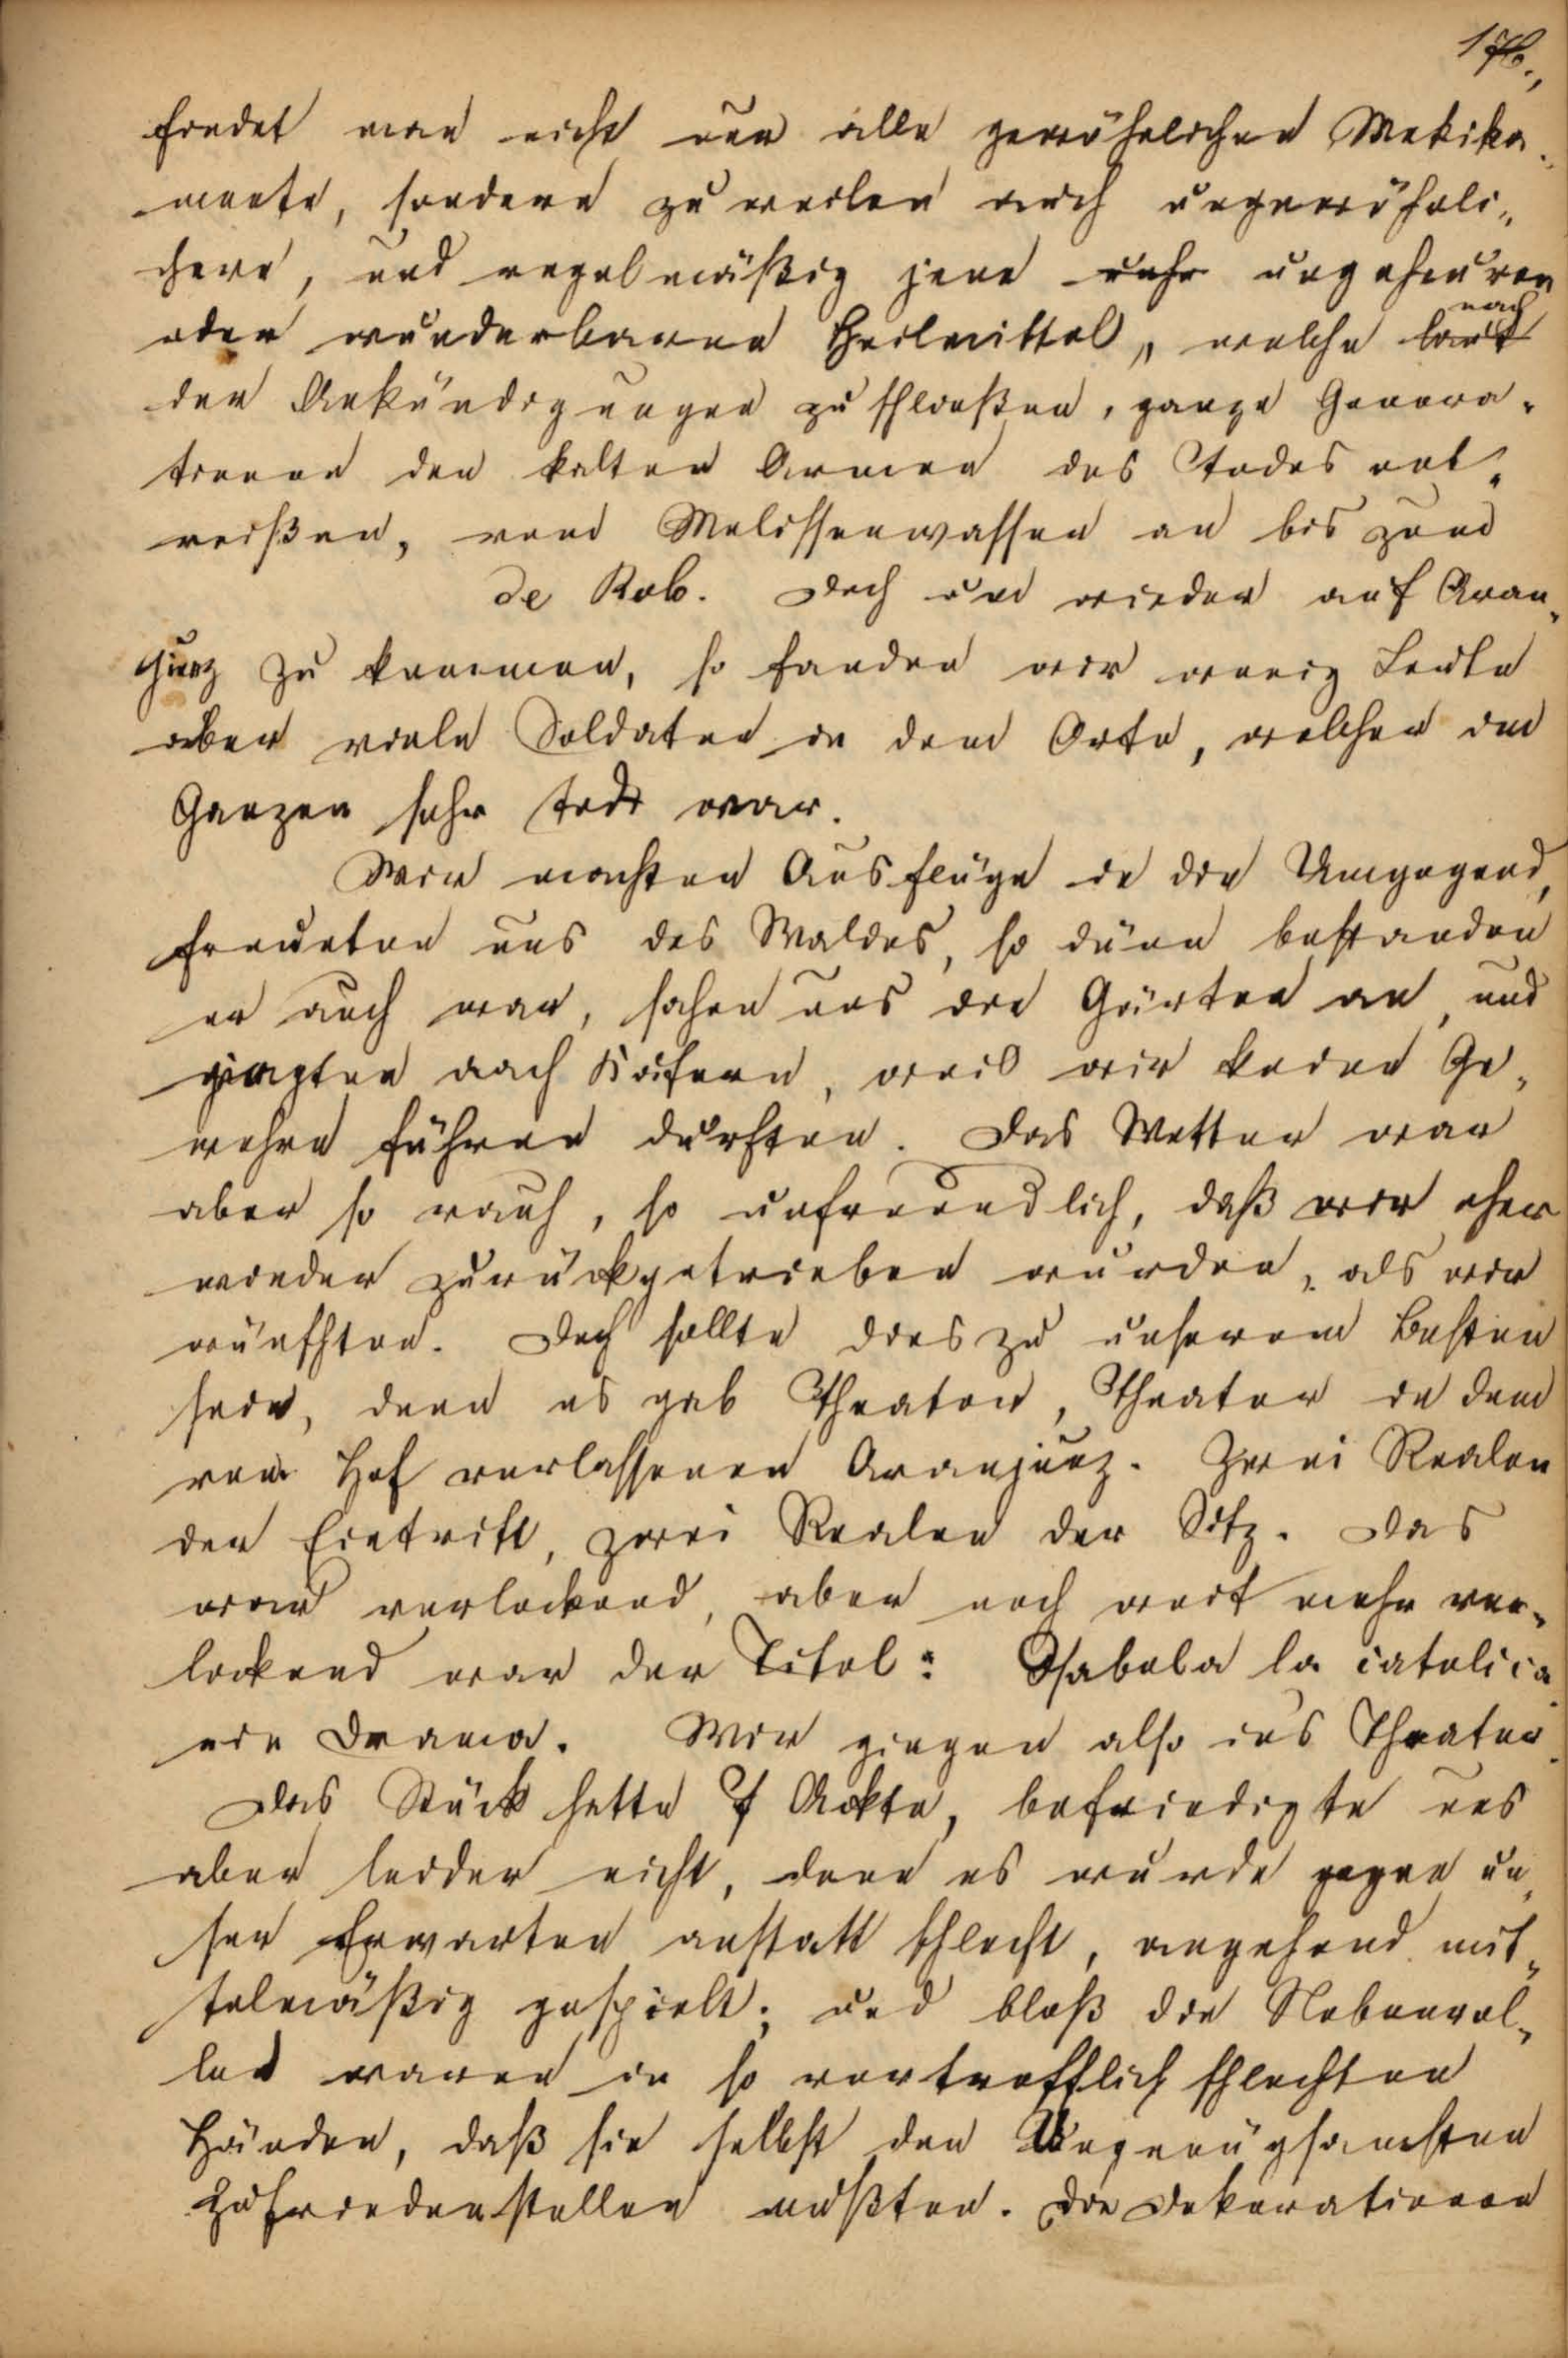 176.,
findet man nicht nur alle gewöhnlichen Medika-
mente, sondern zuweilen auch ungewöhnli-
chere, und regelmäßig jene ungeheuren
oder wunderbaren Heilmittel, welche nach
den Ankündigungen zu schließen, ganze Genera-
tionen den kalten Armen des Todes ent-
reißen, vom Melissenwasser an bis zum
de Rob. Doch um wieder auf Aran-
juez zu kommen, so fanden wir wenig Leute
aber viele Soldaten in dem Orte, welcher im
Ganzen sehr todt war.
Wir machten Ausflüge in die Umgegend,
freueten uns des Waldes, so dünn bestanden
er auch war, sahen uns die Gärten an, und
jagten nach Käfern, weil wir keine Ge-
wehre führen durften. Das Wetter war
aber so rauh, so unfreundlich, daß wir eher
wieder zurückgetrieben wurden, als wir
wünschten. Doch sollte dies zu unserem Besten
sein, denn es gab Theater, Theater in dem
vom Hof verlassenen Aranjuez. Zwei Realen
der Eintritt, zwei Realen der Sitz. Das
war verlockend, aber noch weit mehr ver-
lockend war der Titel: Isabela la catolica
ein Drama. Wir gingen also ins Theater.
Das Stück hatte Ackte, befriedigte uns
aber leider nicht, denn es wurde gegen un-
ser Erwarten anstatt schlecht, eingehend mit-
telmäßig gespielt; und bloß die Nebenrol-
len waren in so vortrefflich schlechten
Händen, daß sie selbst den Ungenügsamsten
zufriedenstellen mußten. Die Dekorationen